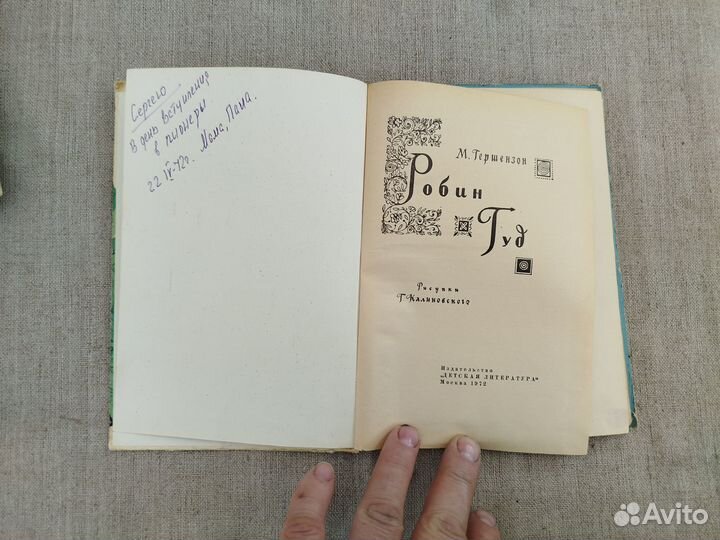 Сергею
В день вступления
в пионеры
22 IV-72г. Мама, Папа.
М. Гершензон
Робин
Гуд
Рисунки
Г. Калиновского
Издательство
„ДЕТСКАЯ ЛИТЕРАТУРА"
Москва 1972
Avito